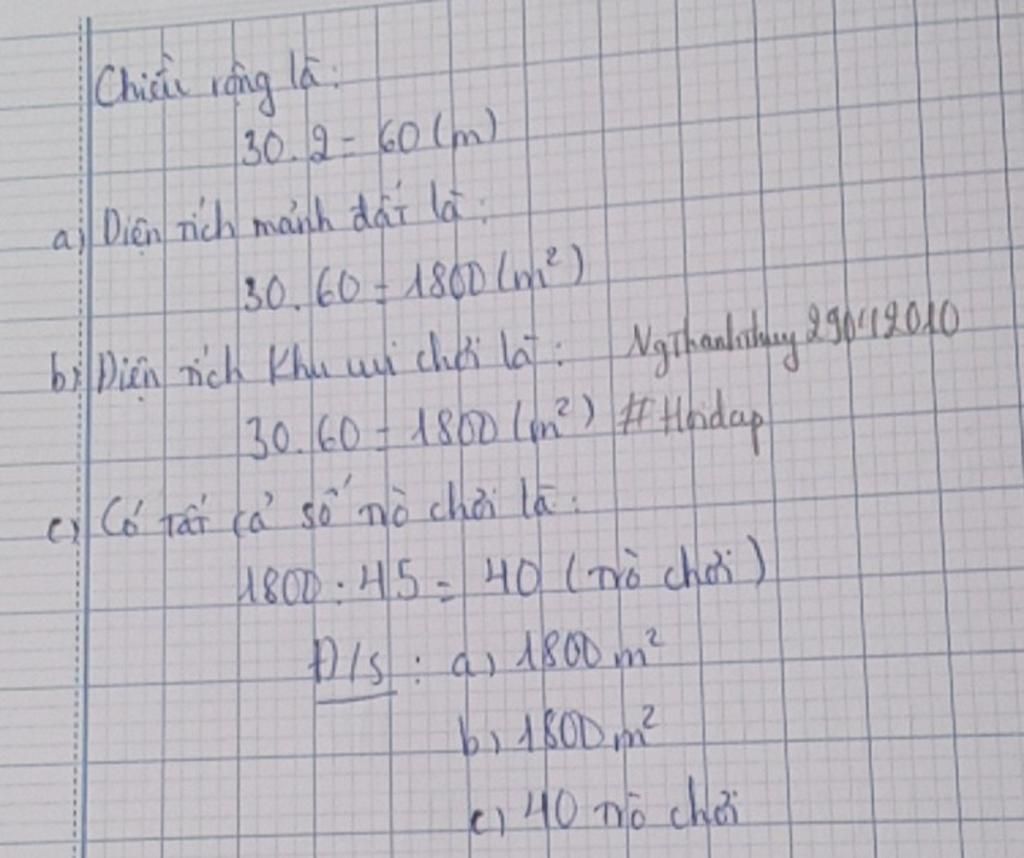 Chiều rộng là:
30.2 = 60 (m)
a) Diện tích mảnh đất là:
30.60 = 1800 (m²)
b) Diện tích khu vui chơi là: NgThanhthuy29042010
30.60 = 1800 (m²) #Hoidap
c) Có tất cả số trò chơi là:
1800 : 45 = 40 (trò chơi)
Đ/s : a) 1800 m²
b) 1800 m²
c) 40 trò chơi